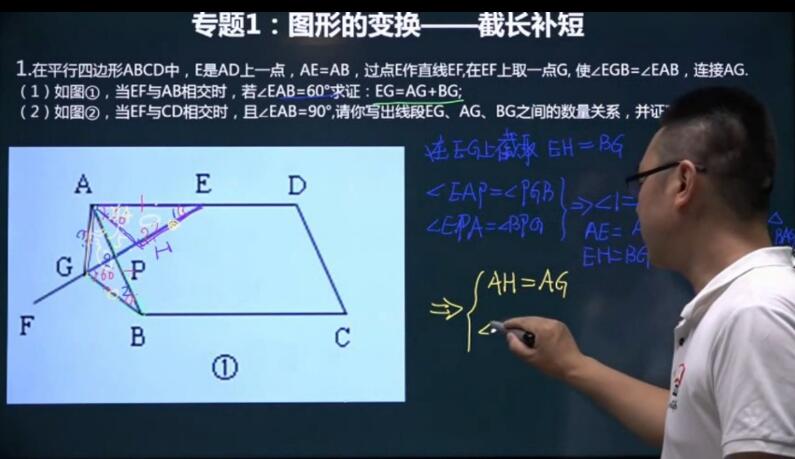 专题1：图形的变换——截长补短
1.在平行四边形ABCD中，E是AD上一点，AE=AB，过点E作直线EF,在EF上取一点G, 使∠EGB=∠EAB，连接AG.
（1）如图①，当EF与AB相交时，若∠EAB=60°求证：EG=AG+BG;
（2）如图②，当EF与CD相交时，且∠EAB=90°,请你写出线段EG、AG、BG之间的数量关系，并证
在EG上截取 EH=BG
∠EAP=∠PGB
∠EPA=∠BPG
⇒∠1=
AE=
EH=BG
△
BAG
⇒ { AH=AG
∠
A E D
G P H
F B C
60
①